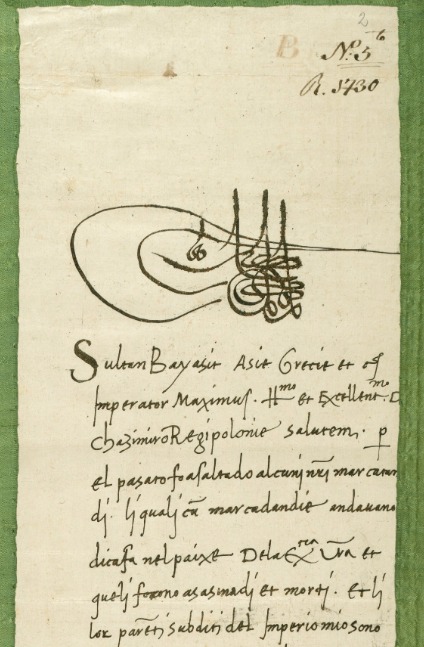 2
6
B
No: 5
R. 1430
Sultan Bayasit Asie Grecie et
Imperator Maximus. Illmo et Excellentmo. D
chazimiro Regi polonie salutem. p
el pasato fo asaltado alcuni nri marcatan
di. li quali cu marcadandie andauano
dicasa nel paixe Dela Exrtia Vra et
queli forono asasinadi et morti. Et li
lor parenti subditi del Imperio mio sono